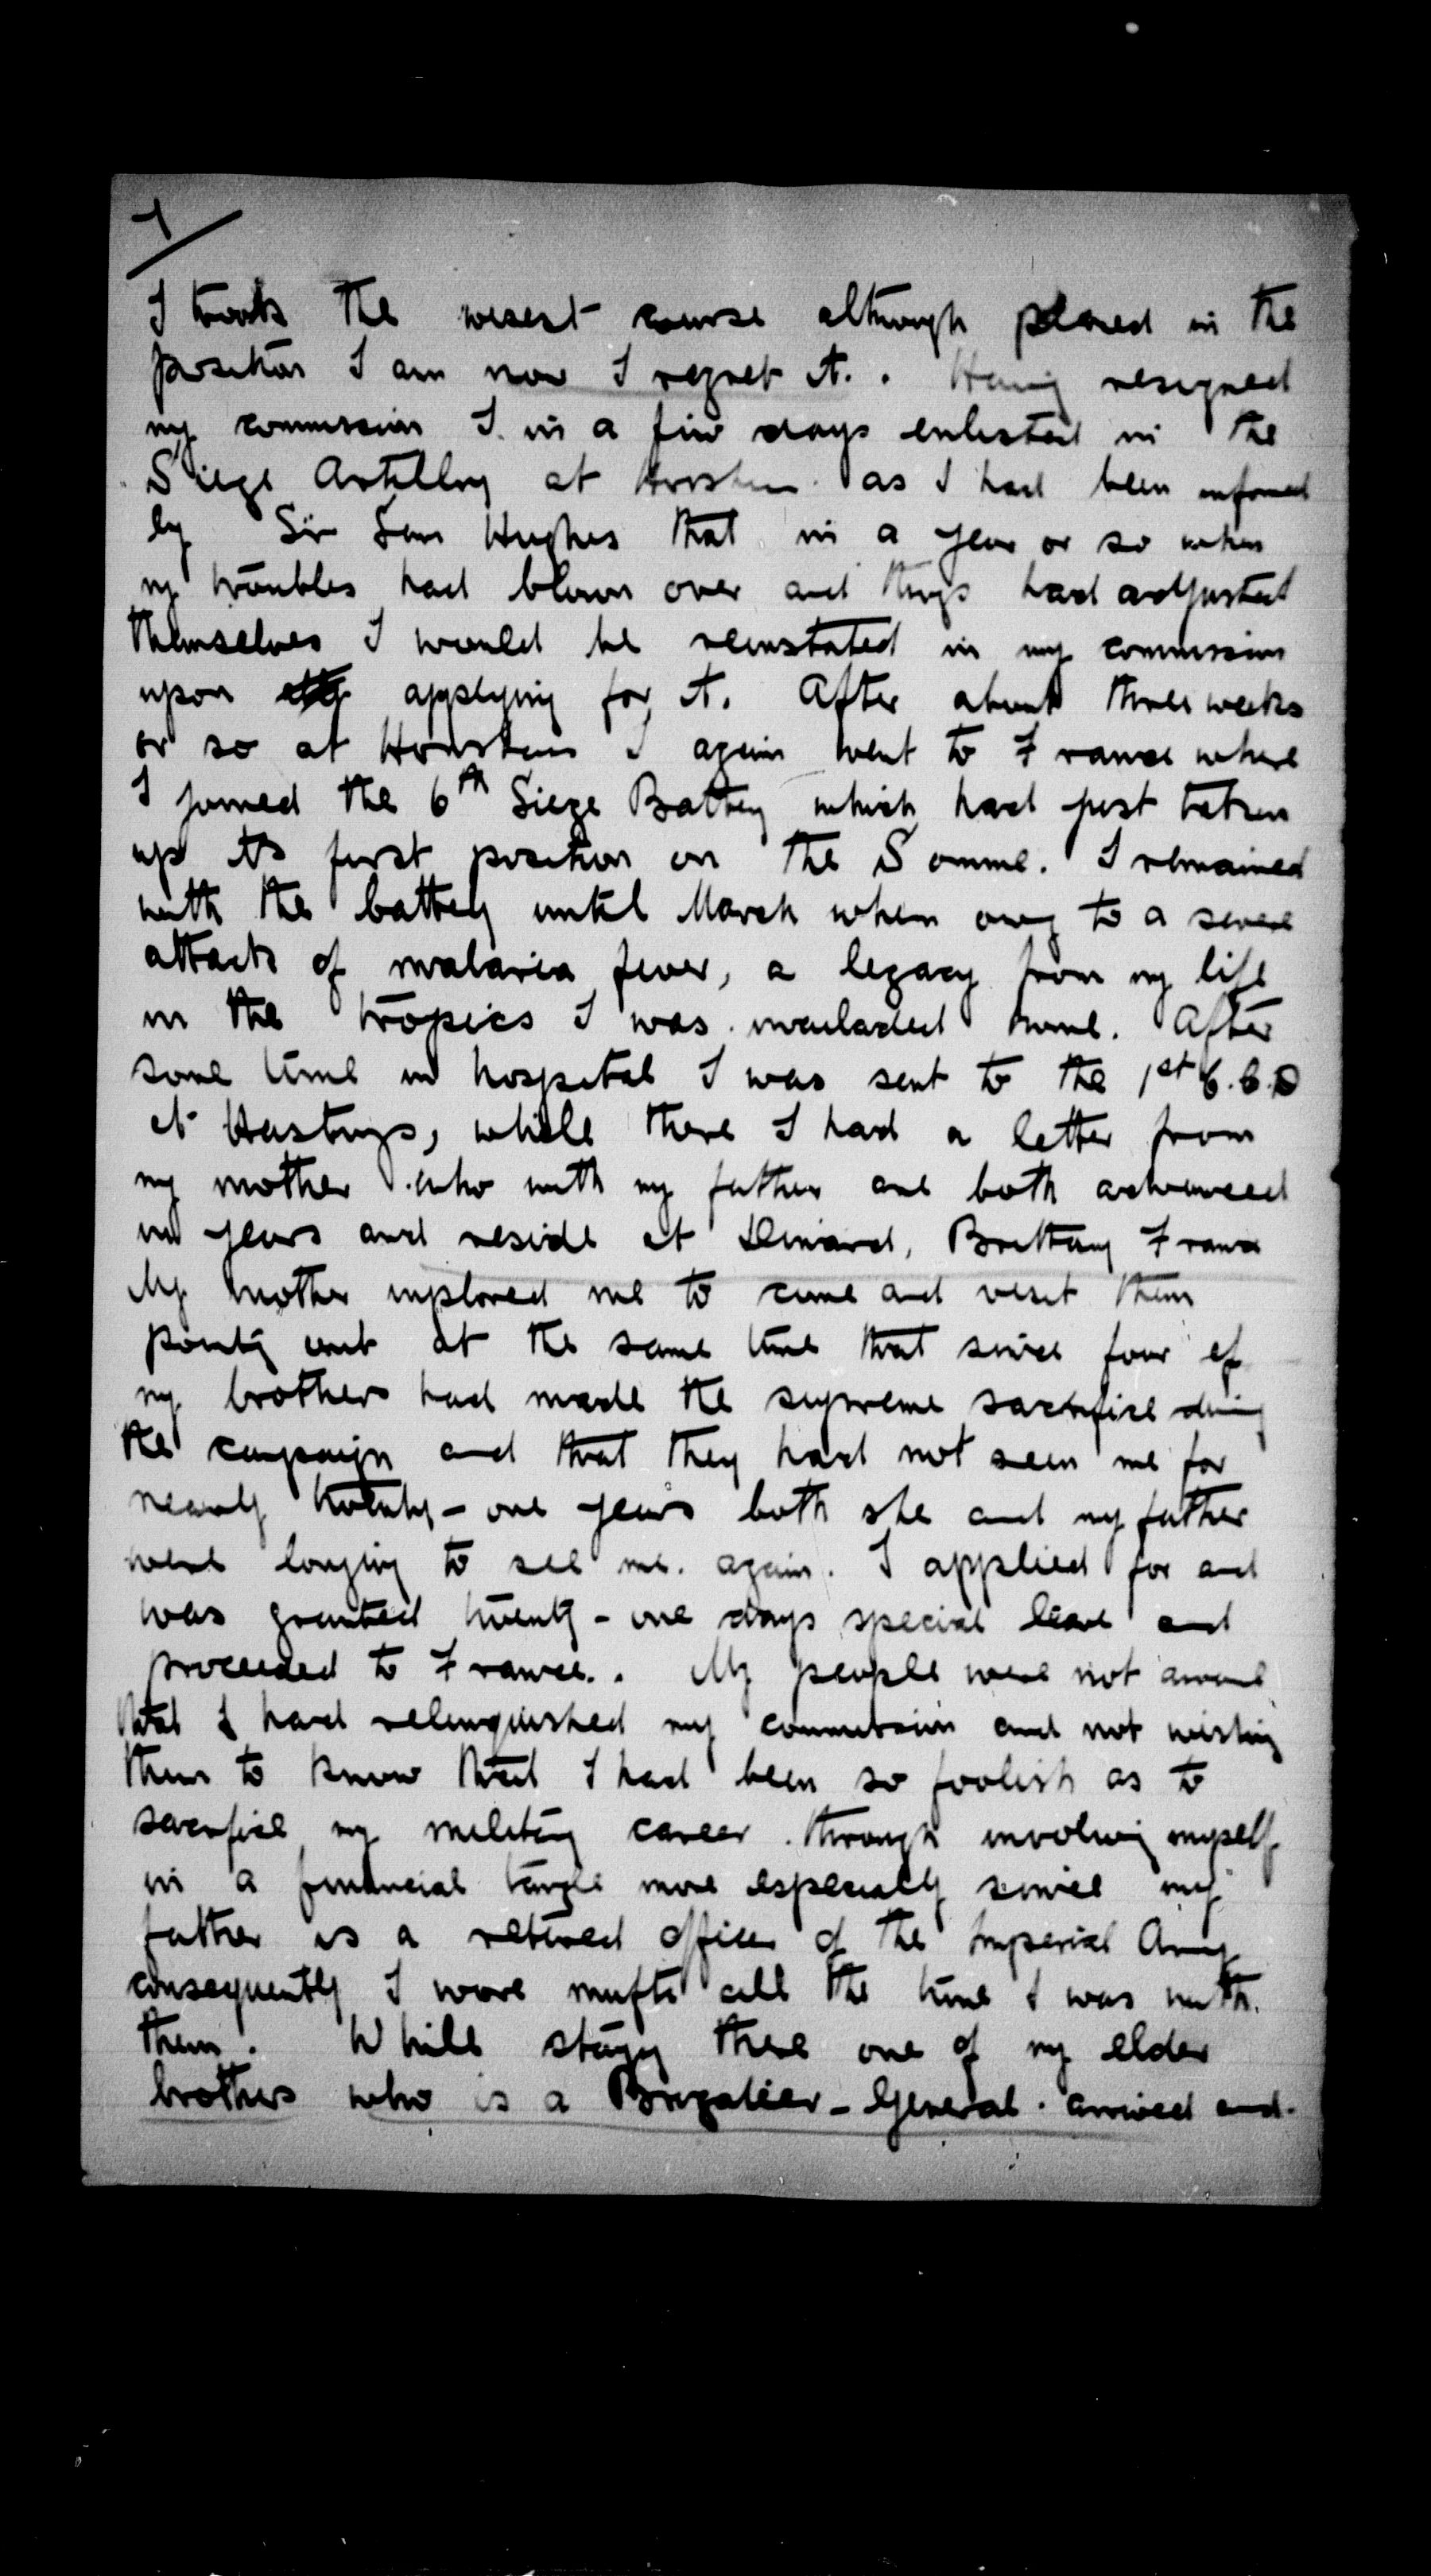 I took the wisest course although placed in the
position I am now I regret it. . Having resigned
my commission I in a few days enlisted in the
Siege Artillery at as I had been informed
by Sir Sam Hughes that in a year or so when
my troubles had blown over and things had adjusted
themselves I would be reinstated in my commission
upon applying for it. After about three weeks
or so at I again went to France where
I joined the 6th Siege Battery which had just taken
up its first position on the Somme. I remained
with the battery until March when owing to a severe
attack of malaria fever, a legacy from my life
in the tropics I was invaladed home. After
some time in hospital I was sent to the 1st C.C.D
at Hastings, while there I had a letter from
my mother who with my father are both advanced
in years and reside at Dinard, Brittany France
My mother implored me to come and visit them
pointing out at the same time that since four of
my brothers had made the supreme sacrifice during
the campaign and that they had not seen me for
nearly twenty-one years both she and my father
were longing to see me again. I applied for and
was granted twenty-one days special leave and
proceeded to France. . My people were not aware
that I had relinquished my commission and not wishing
them to know that I had been so foolish as to
sacrifice my military career through involving myself
in a financial tangle more especially since my
father is a retired officer of the Imperial Army
consequently I wore mufti all the time I was with
them. While staying there one of my elder
brothers who is a Brigadier-General arrived and